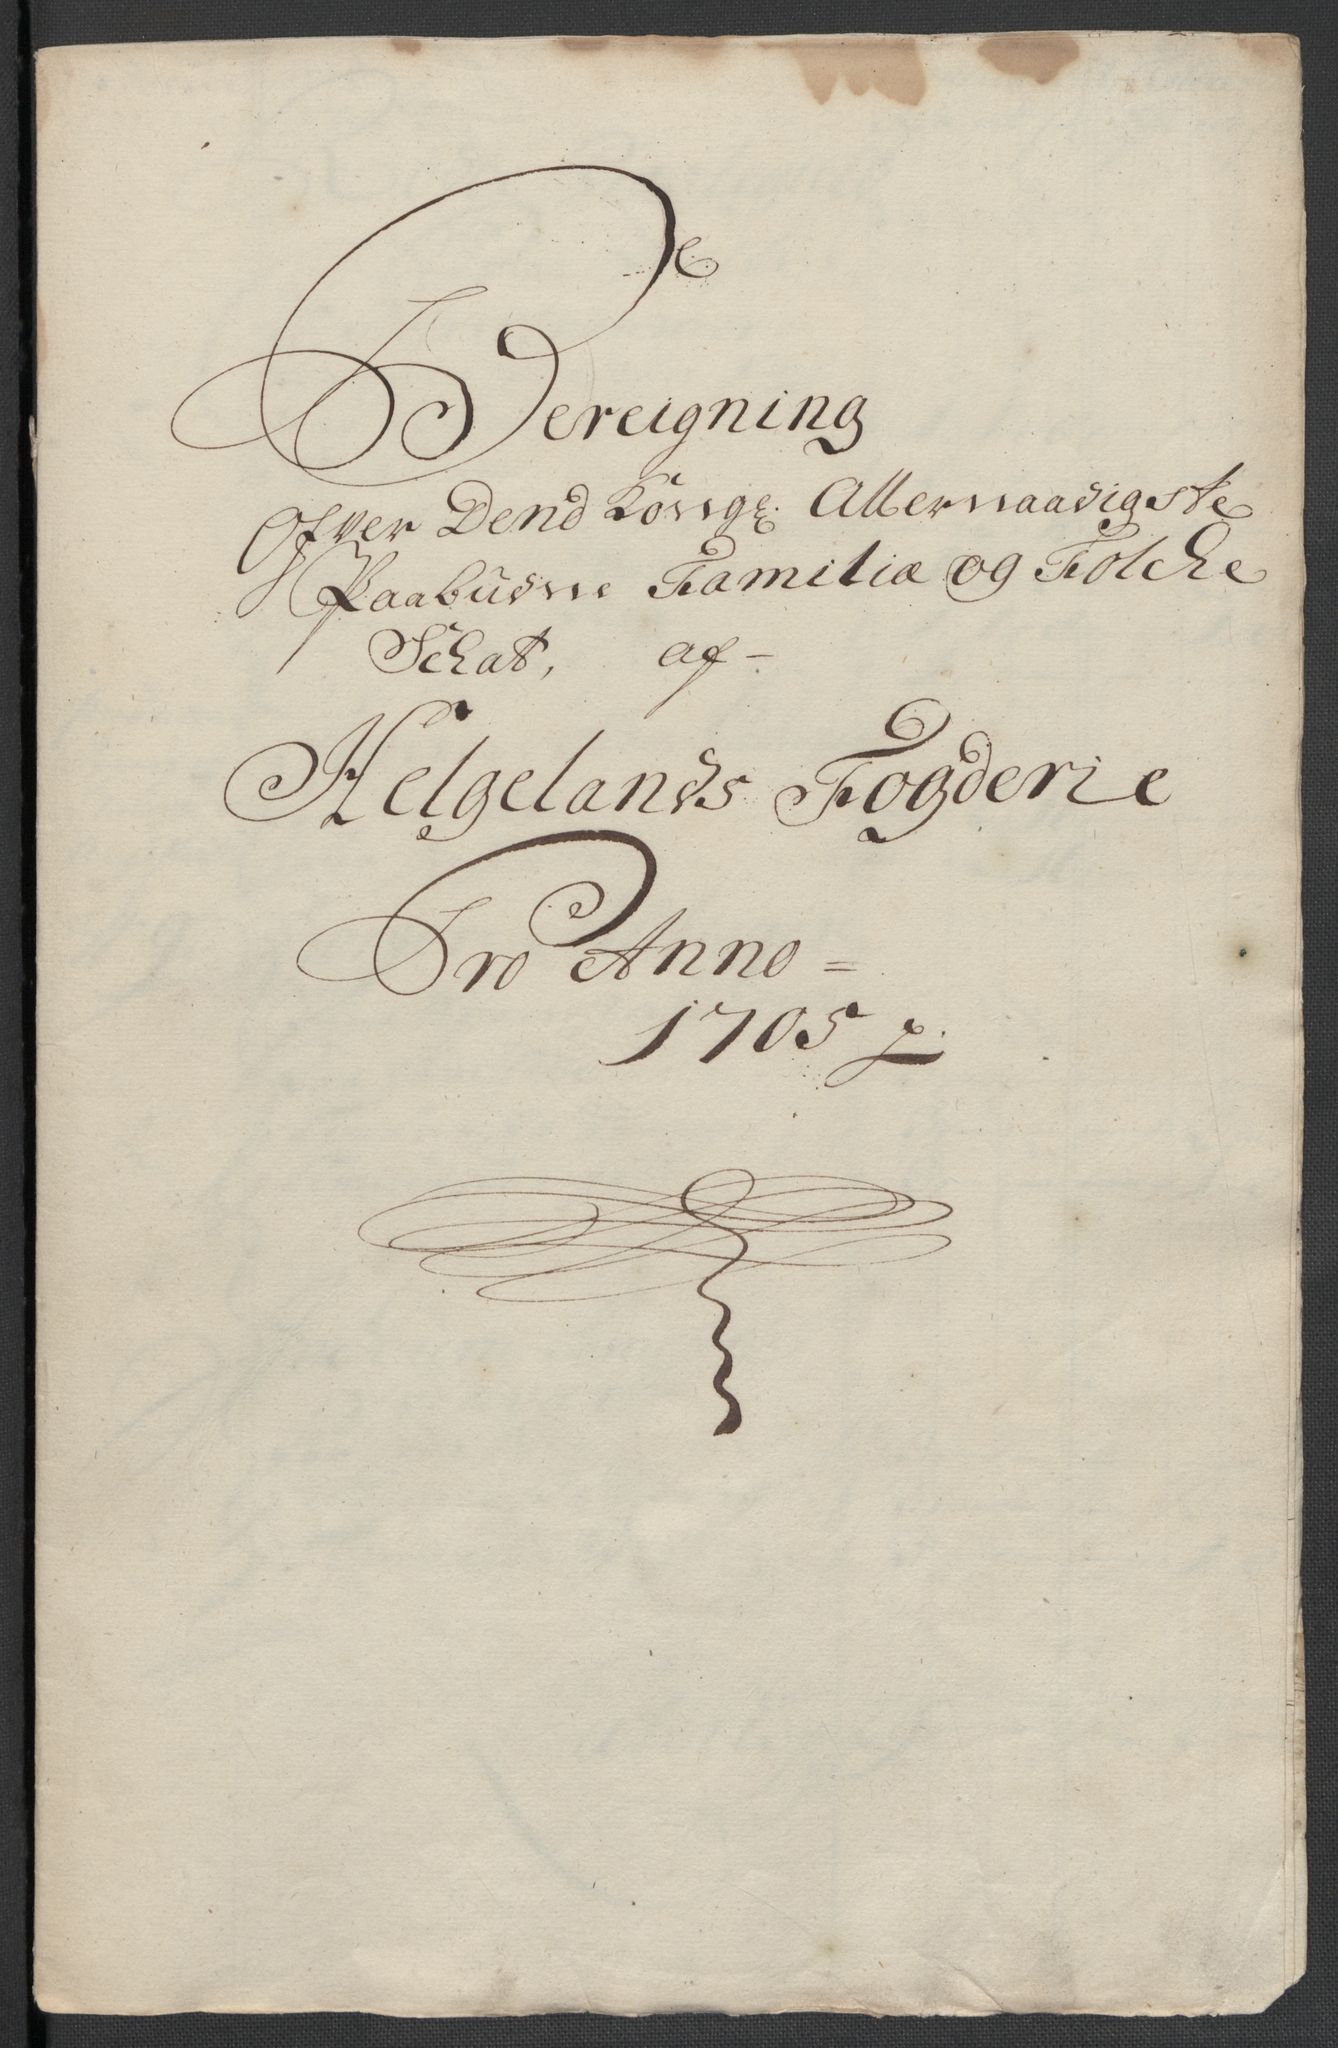 Bereigning
Ofver Dend Kongl: Allernaadigste
Paabudne Familiæ og Folche
Schat, af -
Helgelands Fogderie
Pro Anno =
1705